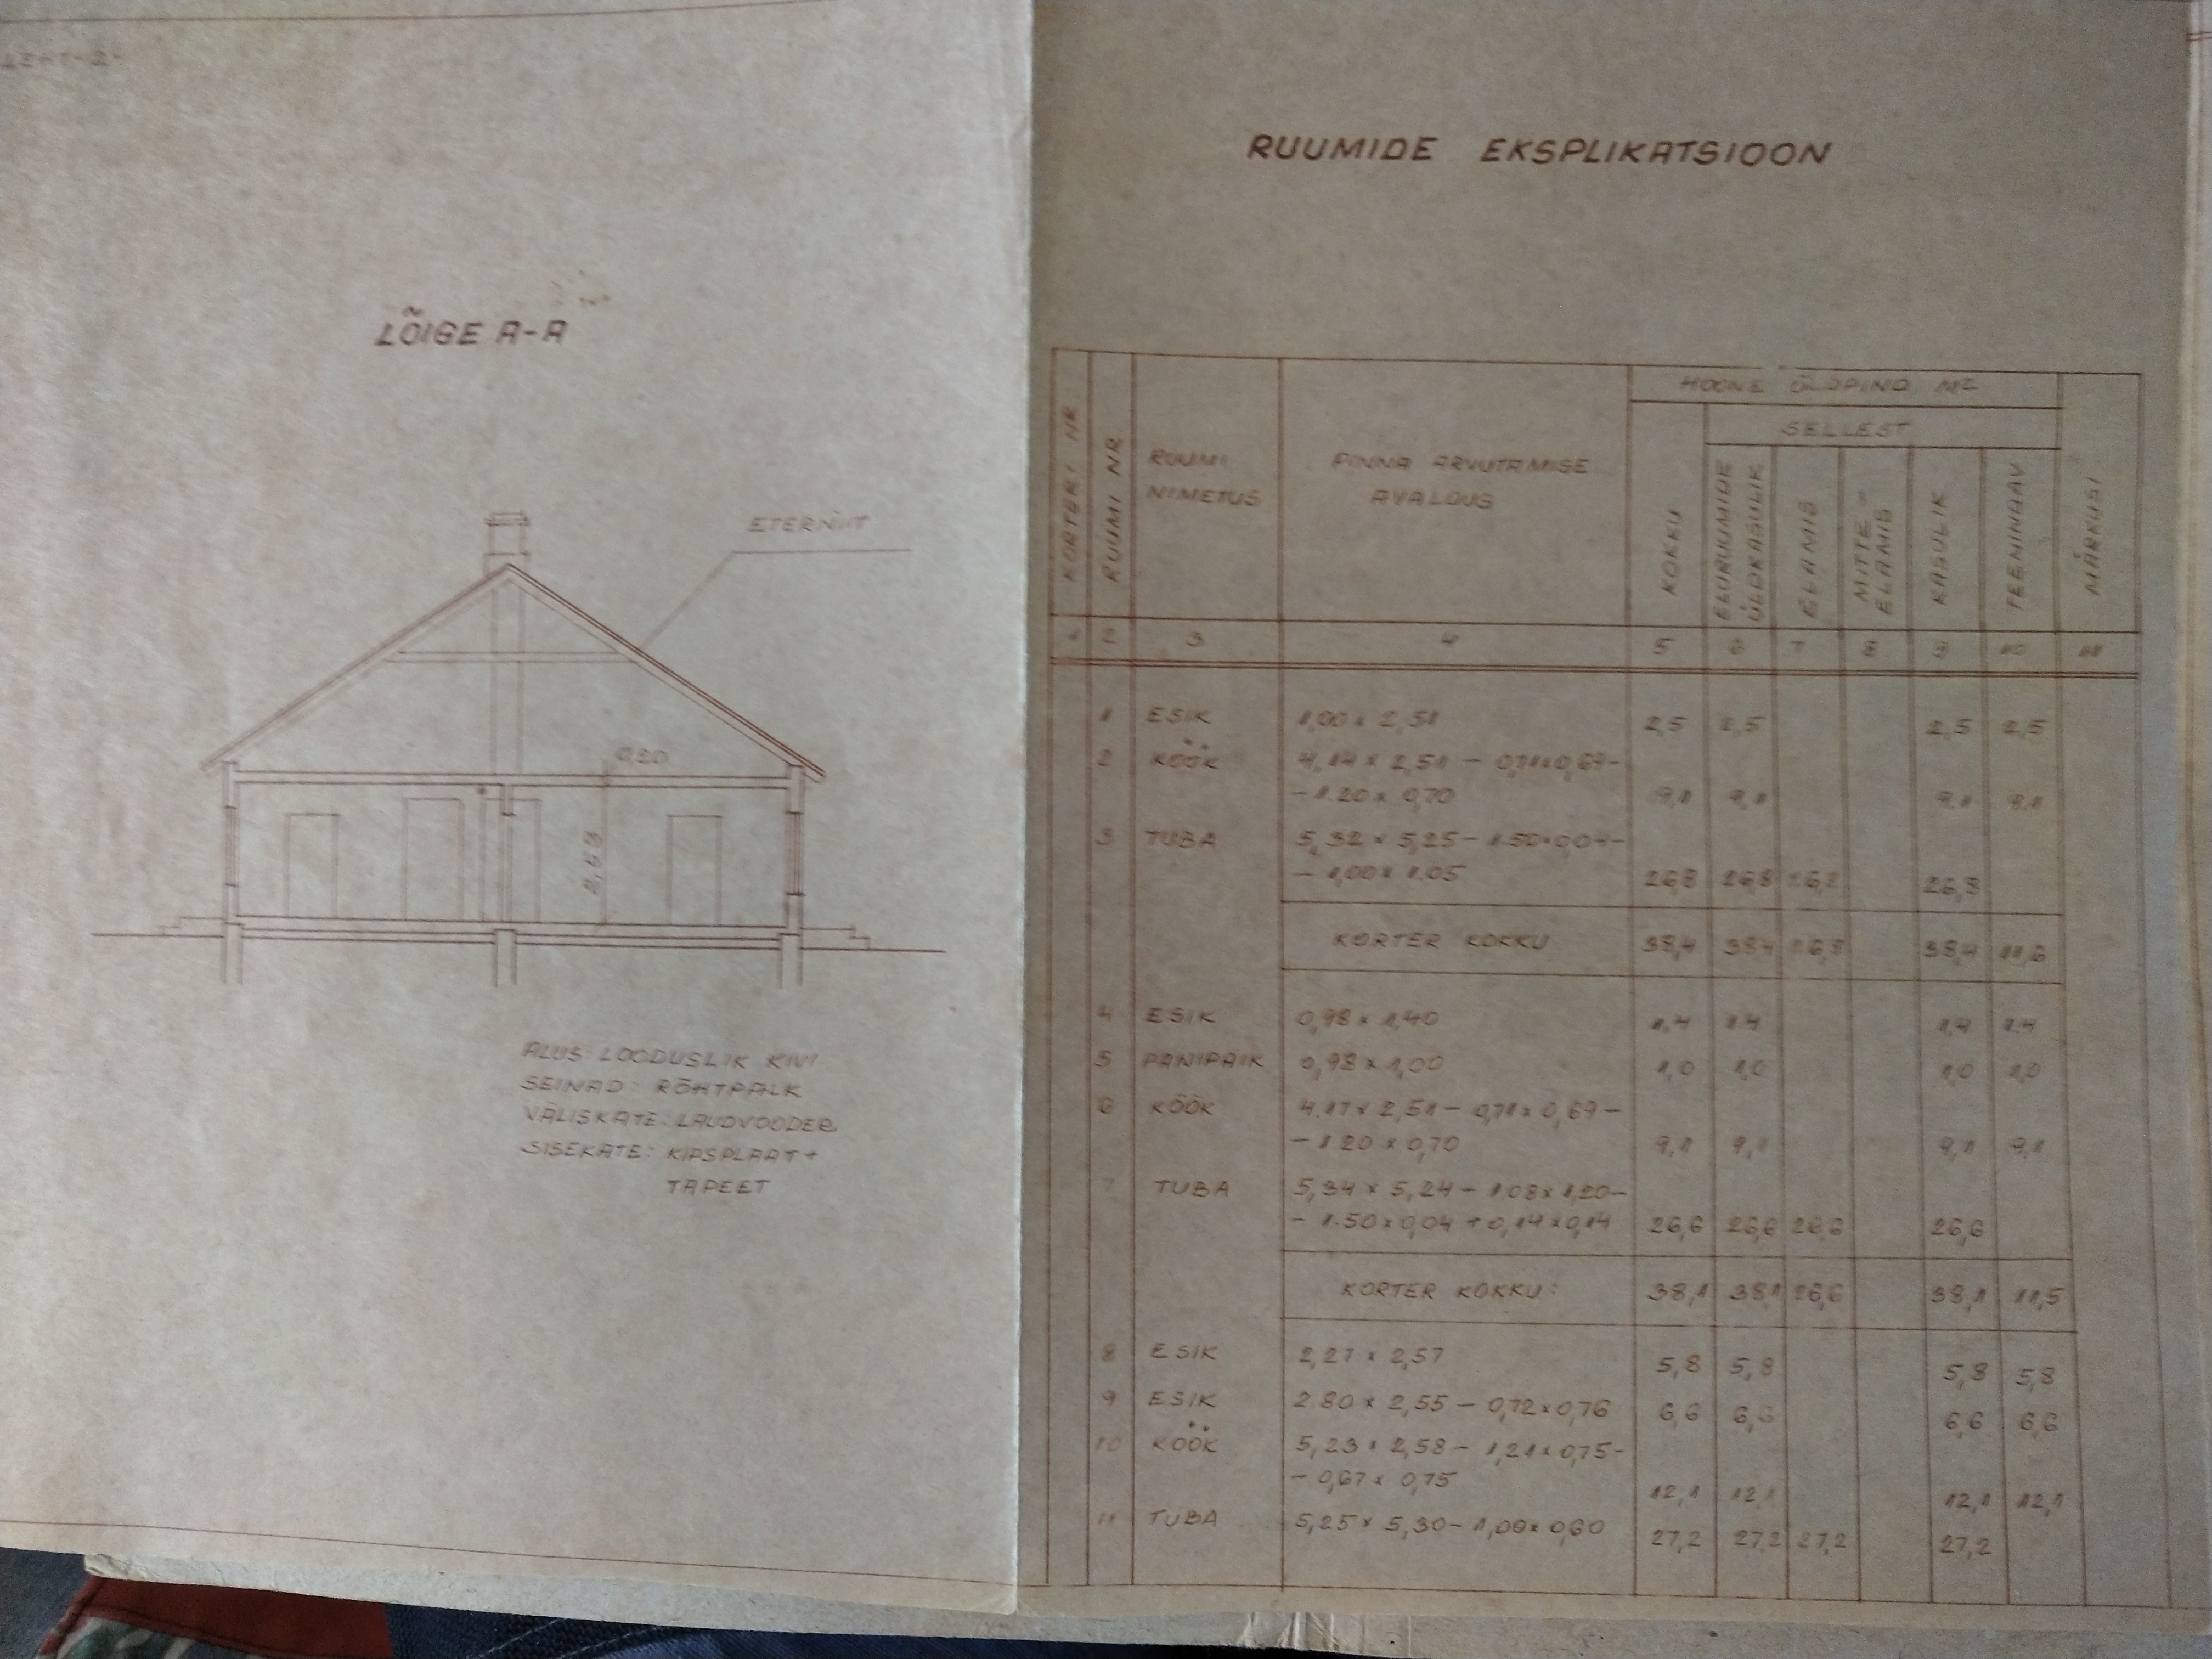 LEHT-2-
LÕIGE A-A
ETERNIIT
0,20
2,53
ALUS: LOODUSLIK KIVI
SEINAD: RÕHTPALK
VÄLISKATE: LAUDVOODER
SISEKATE: KIPSPLAAT+
TAPEET
RUUMIDE EKSPLIKATSIOON
KORTERI NR.
RUUMI NR.
RUUMI
NIMETUS
PINNA ARVUTAMISE
AVALDUS
HOONE ÜLDPIND M2
SELLEST
KOKKU
ELURUUMIDE
ÜLDKASULIK
ELAMIS
MITTE-
ELAMIS
KASULIK
TEENINDAV
MÄRKUSI
1 2 3 4 5 6 7 8 9 10 11
1 ESIK 1,00 x 2,51 2,5 2,5 2,5 2,5
2 KÖÖK 4.14 x 2,51 - 0,71x0,69-
- 1.20 x 0,70 9,1 9,1 9,1 9,1
3 TUBA 5,32 x 5,25 - 1.50x0,04-
- 1,00 x 1.05 26,8 26,8 26,8 26,8
KORTER KOKKU 38,4 38,4 26,8 38,4 11,6
4 ESIK 0,98 x 1,40 1,4 1,4 1,4 1,4
5 PANIPAIK 0,98 x 1,00 1,0 1,0 1,0 1,0
6 KÖÖK 4.17 x 2,51 - 0,71 x 0,69 -
- 1.20 x 0,70 9,1 9,1 9,1 9,1
7 TUBA 5,34 x 5,24 - 1,08 x 1,20-
- 1.50 x 0,04 + 0,14 x 0,14 26,6 26,6 26,6 26,6
KORTER KOKKU: 38,1 38,1 26,6 38,1 11,5
8 ESIK 2,27 x 2,57 5,8 5,8 5,8 5,8
9 ESIK 2.80 x 2,55 - 0,72x0,76 6,6 6,6 6,6 6,6
10 KÖÖK 5,23 x 2,58 - 1,21x0,75-
- 0,67 x 0,75 12,1 12,1 12,1 12,1
11 TUBA 5,25 x 5,30 - 1,00x0,60 27,2 27,2 27,2 27,2